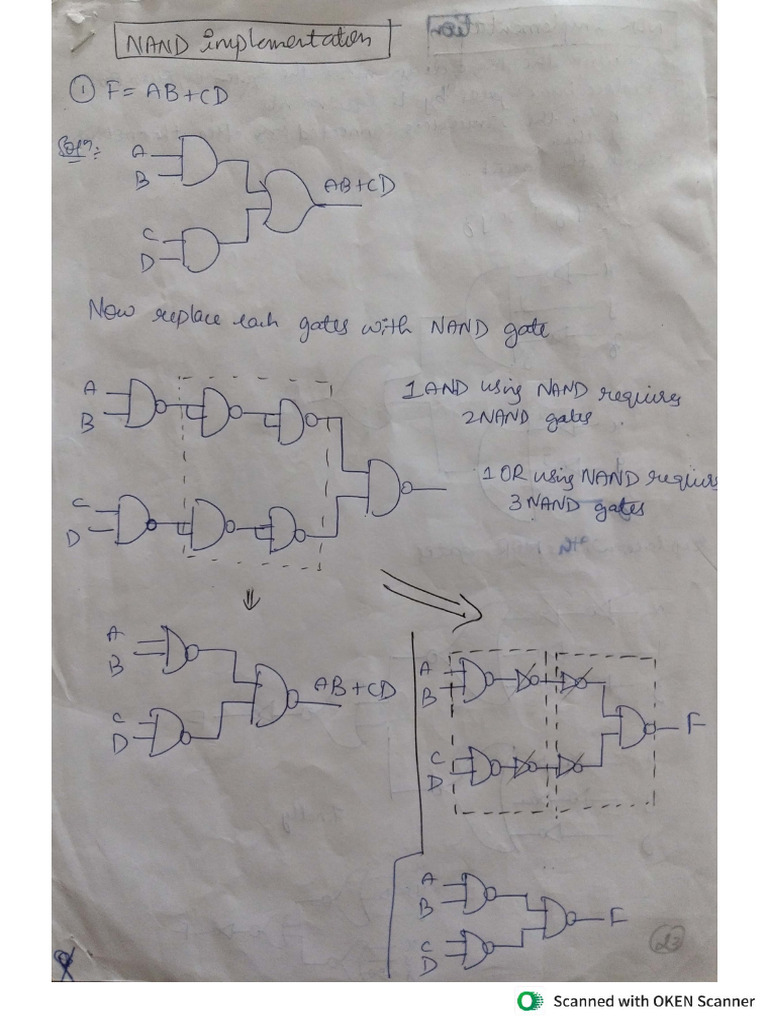 NAND implementation
① F = AB + CD
Soln:
A
B
C
D
AB+CD
Now replace each gates with NAND gate
A
B
C
D
1 AND using NAND requires
2 NAND gates
1 OR using NAND requires
3 NAND gates
A
B
C
D
AB+CD
A
B
C
D
F
A
B
C
D
F
23
Scanned with OKEN Scanner